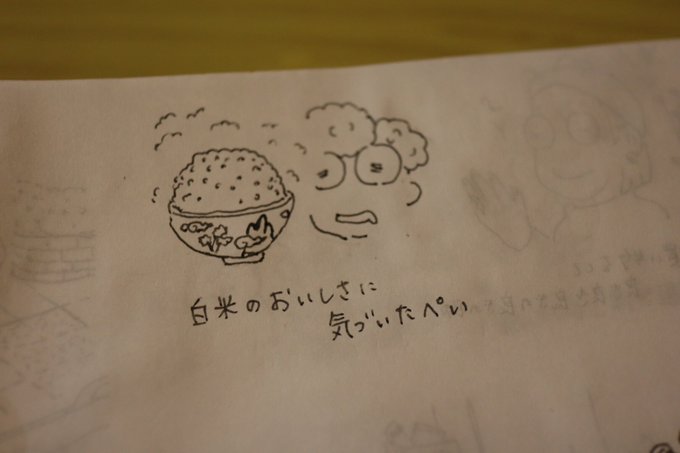 白米のおいしさに
気づいたぺい